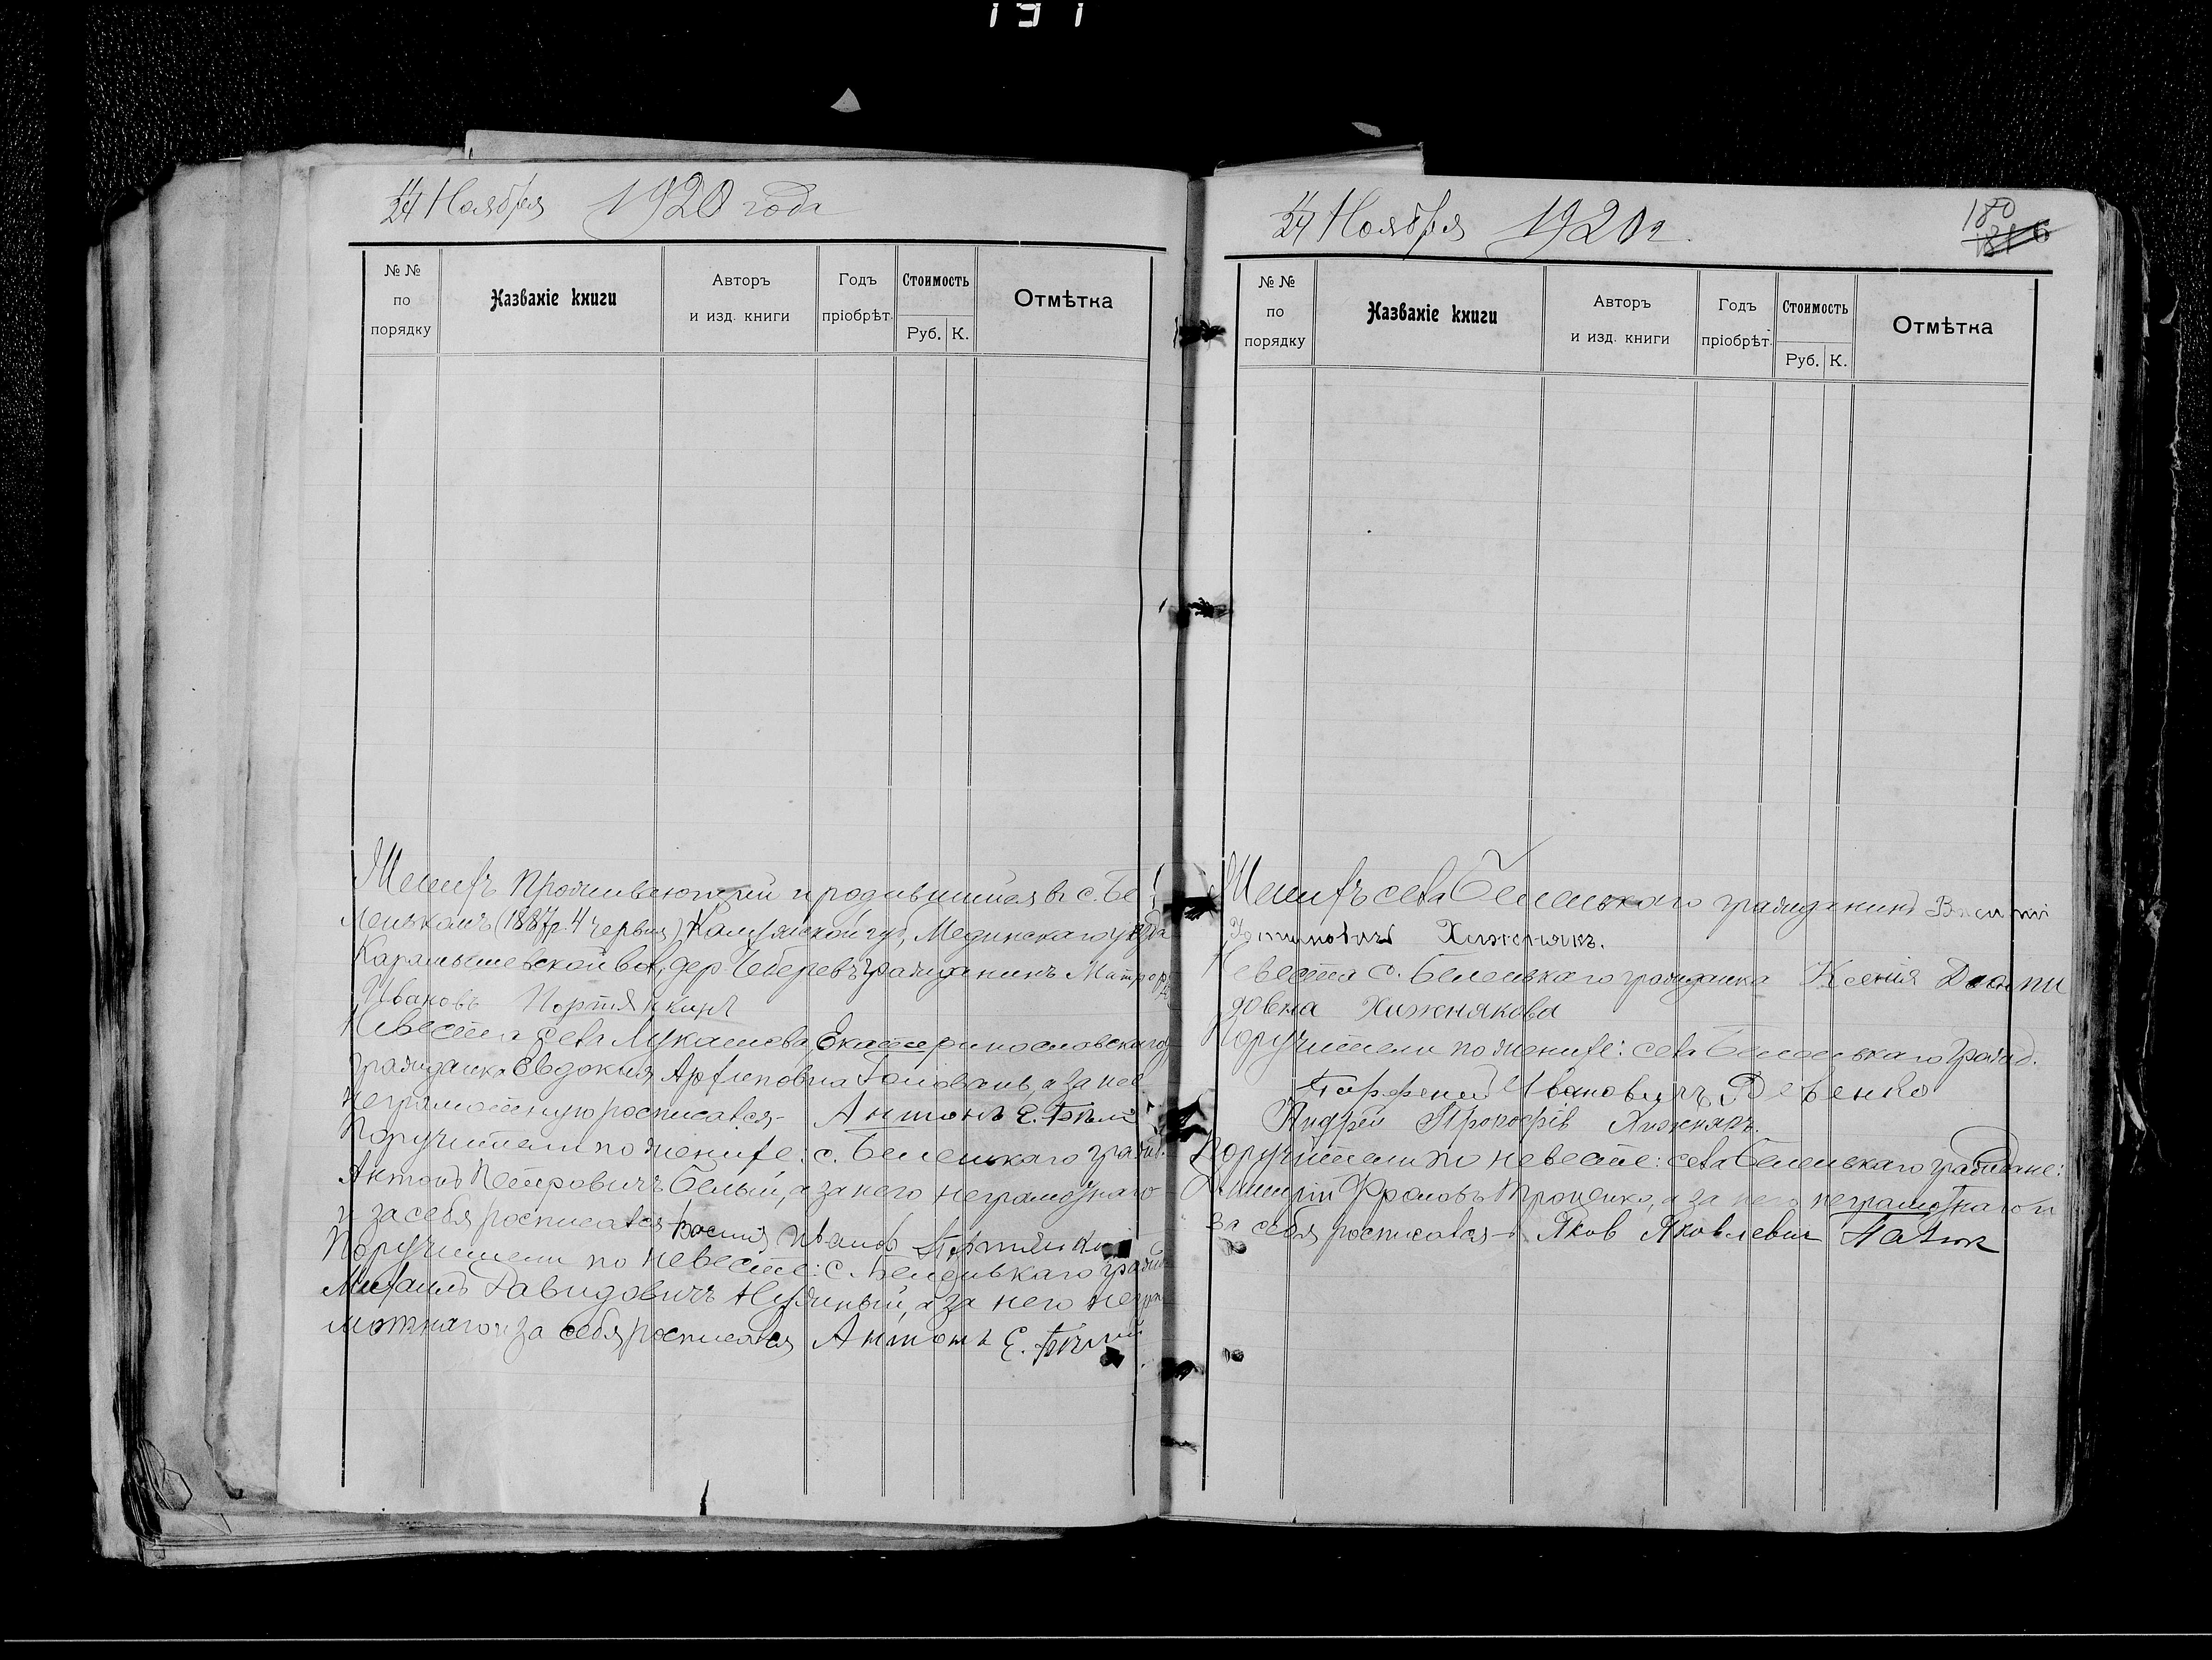 191
11/24 Ноября 1920 года
№ № по порядку
Названіе книги
Авторъ и изд. книги
Годъ пріобрѣт.
Стоимость
Руб. К.
Отмѣтка
Женихъ проживающий и родившийся въ с. Бе
леньком (1887 г. 4 червня) Калужской губ, Мединскаго уѣзда
Карамышевской вол, дер. граждани­нъ
Ивановъ Портянкинъ
Невеста села Лукашева, Екатеринословского,
гражданка Евдокия Архиповна а за нее
неграмотную росписался - Антонъ Е. Бѣлий
Поручители по женихе: с. Беленькаго гражд.
Антонъ Петровичъ Белый, а за него неграмотнаго
и за себя росписался Иванов
Поручители по невесте: с. Беленькаго гражд
Михаилъ Давидовичъ а за него негра
мотнаго и за себя росписался Антонъ Е. Бѣлий
11/24 Ноября 1920 г.
180
№ № по порядку
Названіе книги
Авторъ и изд. книги
Годъ пріобрѣт.
Стоимость
Руб. К.
Отмѣтка
Женихъ села Беленькаго гражданинъ
Хижнякъ.
Невеста с. Беленькаго гражданка Ксения
довна Хижнякова
Поручители по женихе: села Беленькаго гражд.
Иванович
Андрей Хижнякъ.
Поручители по невесте: села Беленькаго граждане:
Дмитрій Фроловъ Троценко, а за него неграмотнаго и
за себя росписался - Яков Яковлевич